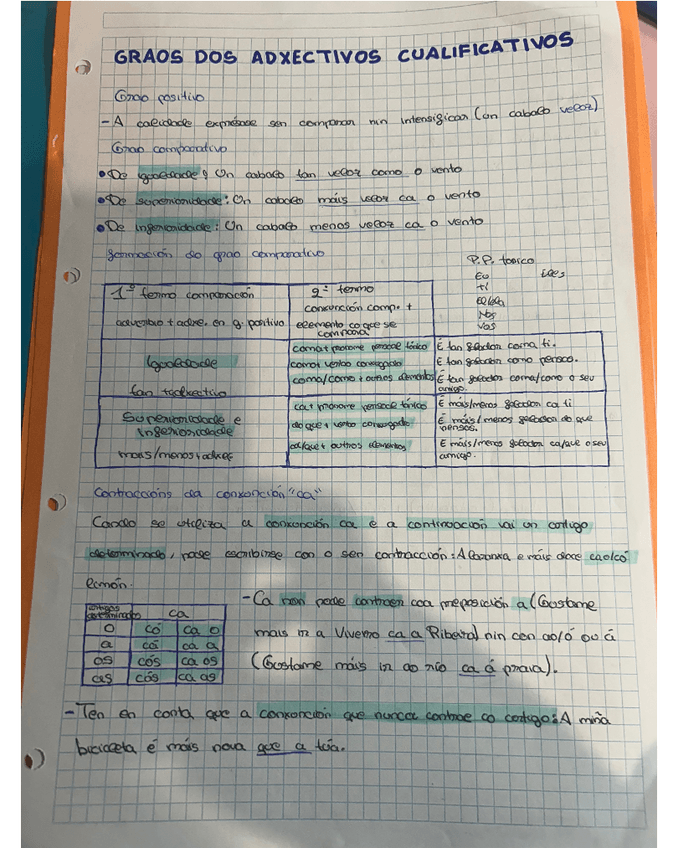 GRAOS DOS ADXECTIVOS CUALIFICATIVOS
Grao positivo
- A calidade exprésase sen comparar nin intensificar (un cabalo veloz)
Grao comparativo
• De igualdade: Un cabalo tan veloz como o vento
• De superioridade: Un cabalo máis veloz ca o vento
• De inferioridade: Un cabalo menos veloz ca o vento
formación do grao comparativo
P.P. tónico
Eu
ti
el/ela
Nós
Vós
1º termo comparación
adverbio + adxe. en g. positivo
2º termo
conxunción comp. +
elemento co que se
compara
Igualdade
tan + adxectivo
coma + pronome persoal tónico
como + verbo conxugado
coma/como + outros elementos
É tan falador coma ti.
É tan falador como penso.
É tan falador coma/como o seu
amigo.
Superioridade e
Inferioridade
mais/menos + adxec
ca + pronome persoal tónico
do que + verbo conxugado
ca/que + outros elementos
É máis/menos falador ca ti
É máis/menos falador do que
pensas.
E máis/menos falador ca/que o seu
amigo.
Contraccións da conxunción "ca"
Cando se utiliza a conxunción ca e a continuación vai un artigo
determinado, pode escribirse con o sen contracción: A laranxa e máis doce ca o/có
limón.
artigos
determinados
ca
o có ca o
a cá ca a
os cós ca os
as cás ca as
- Ca non pode contraer coa preposición a (Gústame
mais ir a Viveiro ca a Ribeira) nin con ao/ó ou á
(Gústame máis ir ao río ca á praia).
- Ten en conta que a conxunción que nunca contrae co artigo: A miña
bicicleta é máis nova que a túa.